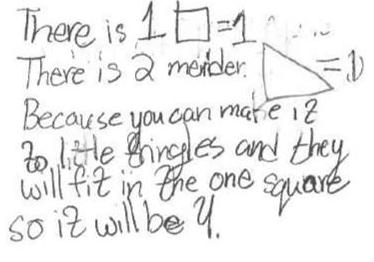 There is 1 □=1
There is 2 meider. △=1
Because you can make it
to little tringles and they
will fit in the one square
so it will be 4.